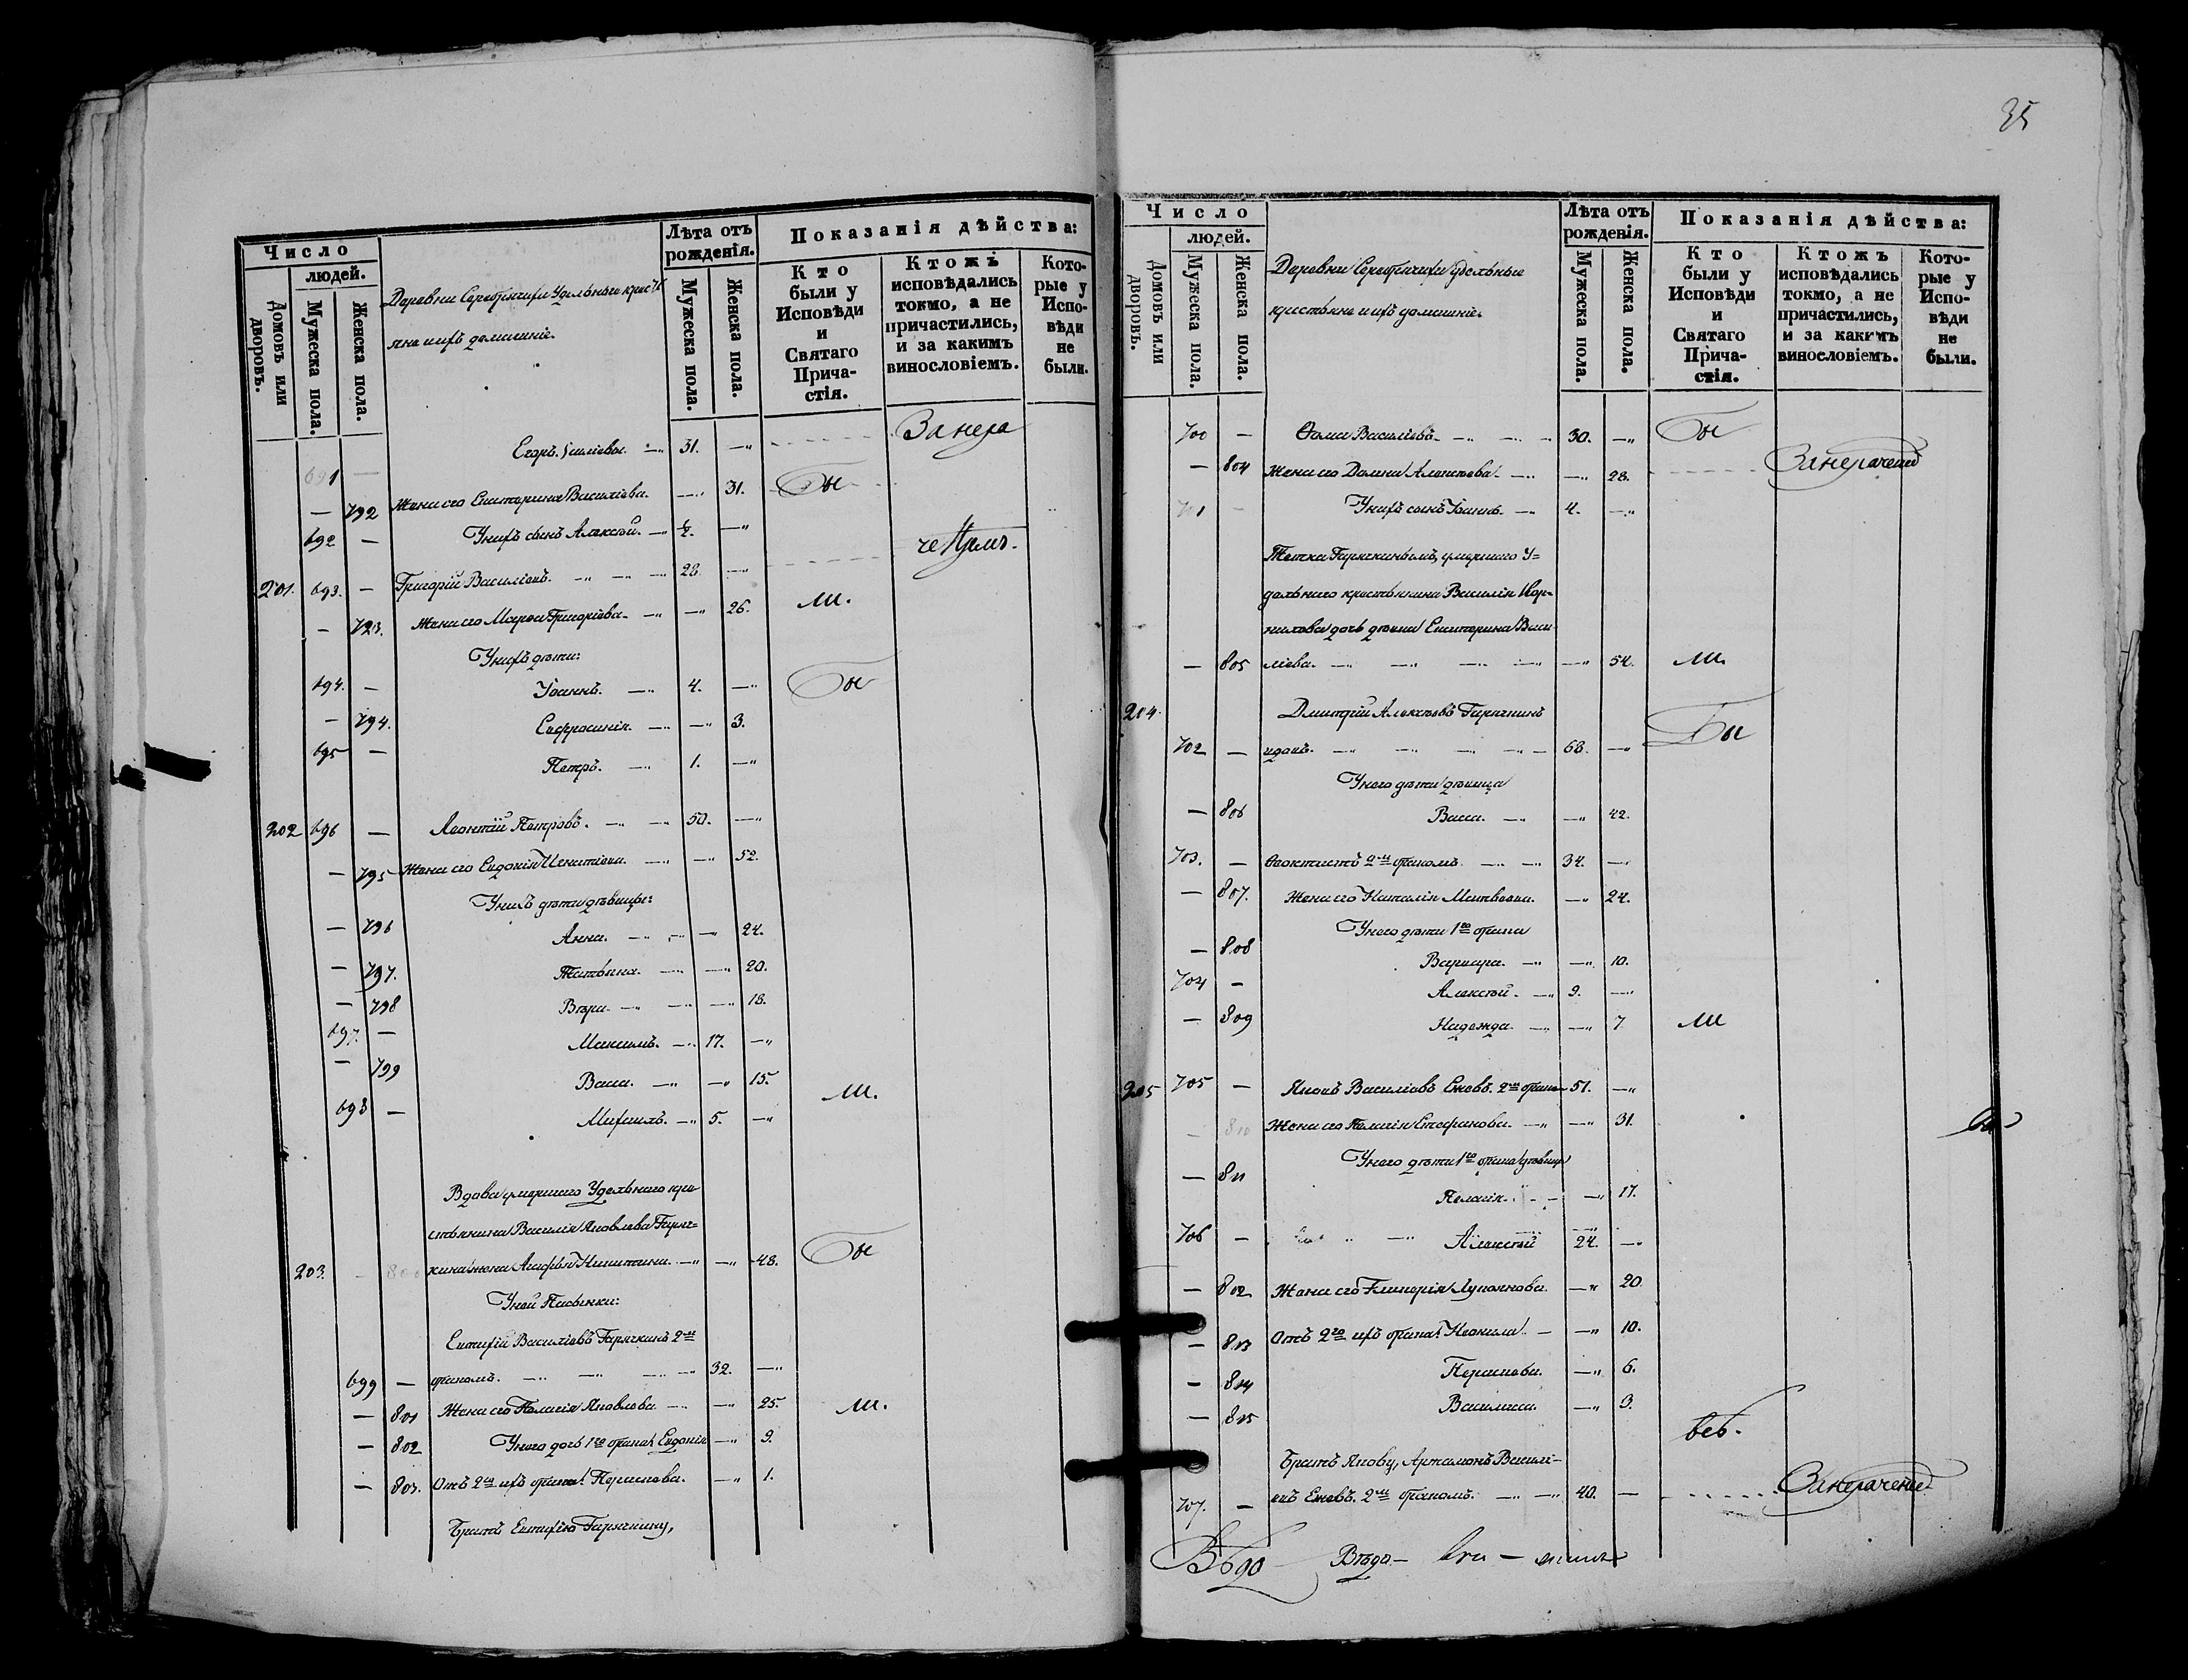 35
Число
людей.
Домовъ или дворовъ.
Мужеска пола.
Женска пола.
Деревни Удельные крестья
яне и ихъ домашніе.
Лѣта отъ рожденія.
Мужеска пола.
Женска пола.
Показанія дѣйства:
Кто были у Исповѣди и Святаго Причастія.
Ктожъ исповѣдались токмо, а не причастились, и за какимъ винословіемъ.
Которые у Исповѣди не были.
691 — Егоръ — 31. — Занера
— 792 Жена его Екатерина Василіева. — 31. Бы
692 — У нихъ сынъ Алексѣй. — ½. —
201. 693. — Григорій Василіевъ. — 28. —
— 793. Жена его Марѳа Григоріева. — 26. ли.
У нихъ дѣти:
694. — Іоаннъ. — 4. — Бы
— 794. Евфросинія. — 3.
695 — Петръ. — 1. —
202 696 — Леонтій Петровъ. — 50. —
— 795 Жена его Евдокія Игнатіева. — 52.
У нихъ дѣти дѣвицы:
— 796 Анна. — 24.
— 797. Татьяна. — 20.
— 798 Вѣра. — 18.
697. — Максимъ. — 17. —
— 799 Васса. — 15.
698 — Михаилъ. — 5. — ли.
Вдова умершаго Удельнаго кре
стьянина Василія Яковлева Горяч=
203. — 800 кина жена Агафья Никитина. — 48. Бы
У ней Пасынки:
Евтихій Василіевъ Горячкинъ 2мъ
699 — бракомъ. — 32. —
— 801 Жена его Пелагія Яковлева — 25. ли.
— 802 У него дочь 1го брака Евдокія — 9.
— 803. Отъ 2го ихъ брака Параскева. — 1.
Братъ Евтихію Горячкину,
Число
людей.
Домовъ или дворовъ.
Мужеска пола.
Женска пола.
Деревни удельные
крестьяне и ихъ домашніе.
Лѣта отъ рожденія.
Мужеска пола.
Женска пола.
Показанія дѣйства:
Кто были у Исповѣди и Святаго Причастія.
Ктожъ исповѣдались токмо, а не причастились, и за какимъ винословіемъ.
Которые у Исповѣди не были.
700 — Ѳома Василіевъ — 30. — Бы
— 804 Жена его Домна Алексѣева. — 28. Занерачение
701 — У нихъ сынъ Іоаннъ. — 4. —
Тетка Горячкинымъ, умершаго У=
дельнаго крестьянина Василія Кор=
нилова дочь дѣвка Екатерина Васи
— 805 ліева. — 54. ли.
204. Димитрій Алексѣевъ Горячкинъ
702 — вдовъ. — 68. — Бы
У него дѣти дѣвица
— 806 Васса. — 42.
703. — Ѳеоктистъ 2мъ бракомъ. — 34. —
— 807. Жена его Наталія Матвѣева. — 24.
У него дѣти 1го брака
— 808 Варвара. — 10.
704 — Алексѣй. — 9. —
— 809 Надежда. — 7. ли
205 705 — Яковъ Василіевъ Ежовъ. 2мъ брако 51. —
— 810 Жена его Пелагія Стефанова. — 31.
У него дѣти 1го брака дѣвица
— 811 Пелагія. — 17.
706 — Алексѣй 24. —
— 812 Жена его Гликерія Лукоянова. — 20
— 813 Отъ 2го ихъ брака: Неонила. — 10.
— 814 Параскева. — 6.
— 815 Василисса. — 3.
Братъ Якову, Артамонъ Василі=
707. — евъ Ежовъ. 2мъ бракомъ. — 40. — Занерачение